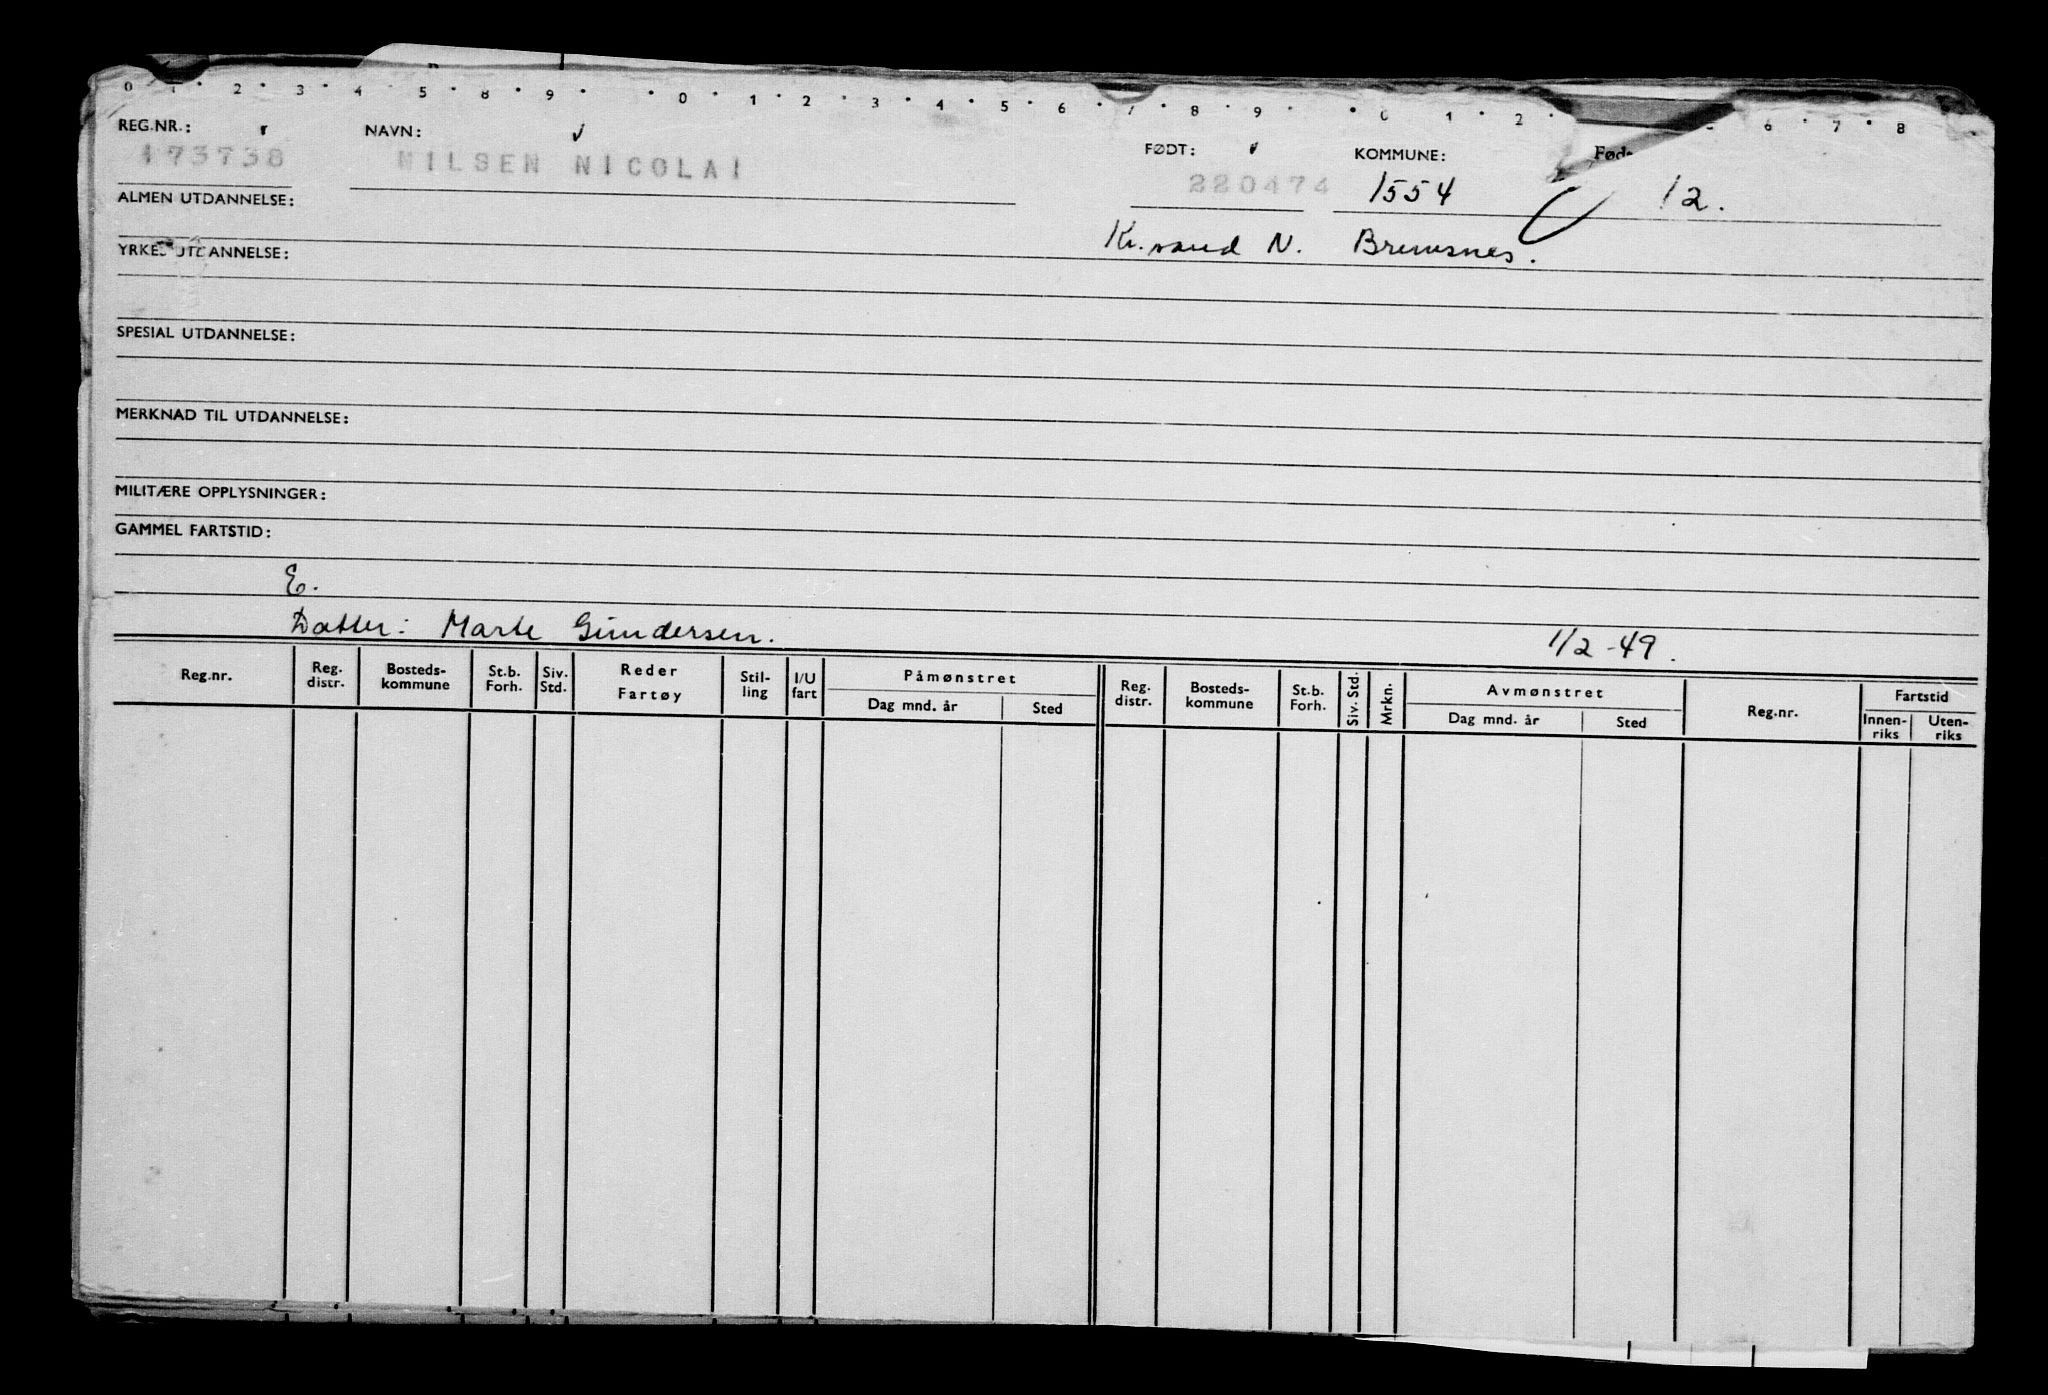 0 1 2 3 4 5 8 9 0 1 2 3 4 5 6 7 8 9 0 1 2 6 7 8
REG.NR.: NAVN: FØDT: KOMMUNE: Føds
173738 NILSEN NICOLAI 220474 1554 12.
ALMEN UTDANNELSE:
Kr.sand N. Bremsnes.
YRKESUTDANNELSE:
SPESIAL UTDANNELSE:
MERKNAD TIL UTDANNELSE:
MILITÆRE OPPLYSNINGER:
GAMMEL FARTSTID:
E.
Datter: Marte Gundersen. 1/2-49.
Reg.nr. Reg. distr. Bosteds- kommune St.b. Forh. Siv. Std. Reder Fartøy Stil- ling I/U fart Påmønstret Dag mnd. år Sted Reg. distr. Bosteds- kommune St.b. Forh. Siv. Std. Mrkn. Avmønstret Dag mnd. år Sted Reg.nr. Fartstid Innen- riks Uten- riks